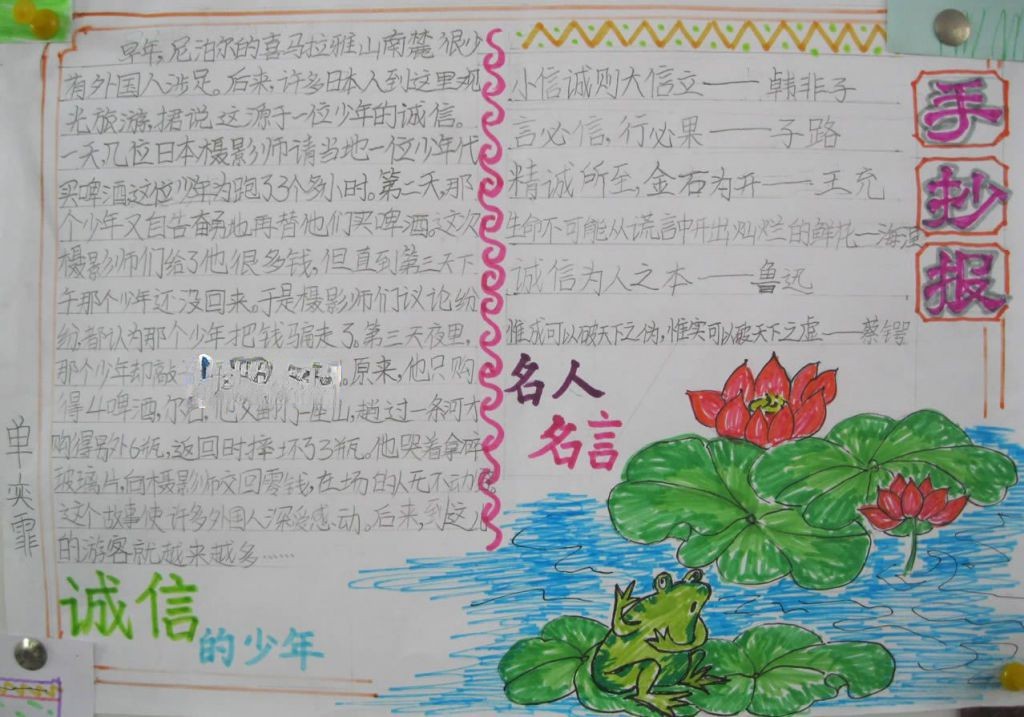 早年,尼泊尔的喜马拉雅山南麓很少
有外国人涉足。后来,许多日本人到这里观
光旅游,据说这源于一位少年的诚信。
一天,几位日本摄影师请当地一位少年代
买啤酒,这位少年为跑了3个多小时。第二天,那
个少年又自告奋勇地再替他们买啤酒。这次
摄影师们给了他很多钱,但直到第三天下
午那个少年还没回来。于是摄影师们议论纷
纷,都认为那个少年把钱骗走了。第三天夜里,
那个少年却敲
。原来,他只购
得4啤酒,尔后,他又翻了一座山,趟过一条河才
购得另外6瓶,返回时摔坏了3瓶。他哭着拿碎
玻璃片,向摄影师交回零钱,在场的人无不动
这个故事使许多外国人深受感动。后来,到这儿
的游客就越来越多……
诚信
的少年
单奕霏
小信诚则大信立——韩非子
言必信,行必果——子路
精诚所至,金石为开——王充
生命不可能从谎言中开出灿烂的鲜花—海涅
诚信为人之本——鲁迅
惟诚可以破天下之伪,惟实可以破天下之虚——蔡锷
名人
名言
手
抄
报